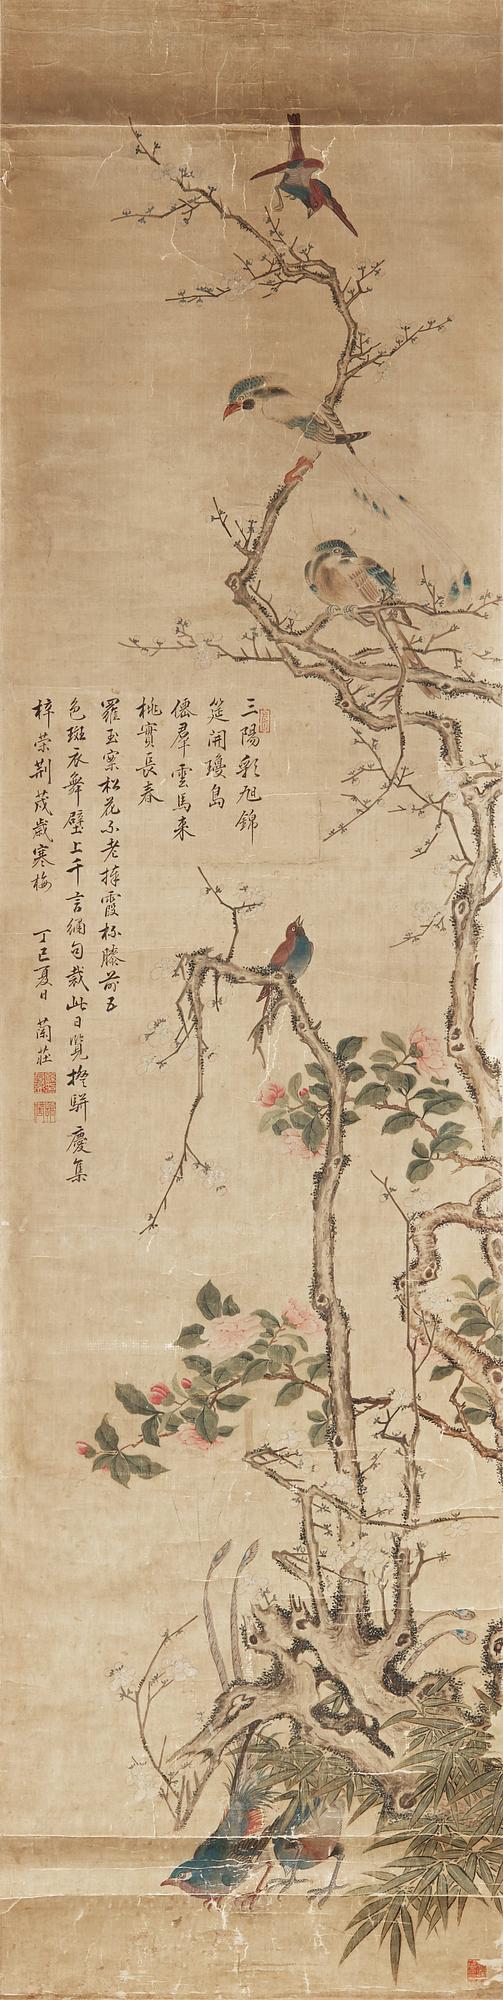 三陽彩旭錦
筵開瓊島
僊羣雲馬來
桃實長春
羅玉寀松花不老捧霞杯膝前五
色斑衣舞壁上千言繡句裁此日覽揆駢慶集
梓榮荆茂歲寒梅
丁巳夏日 蘭莊